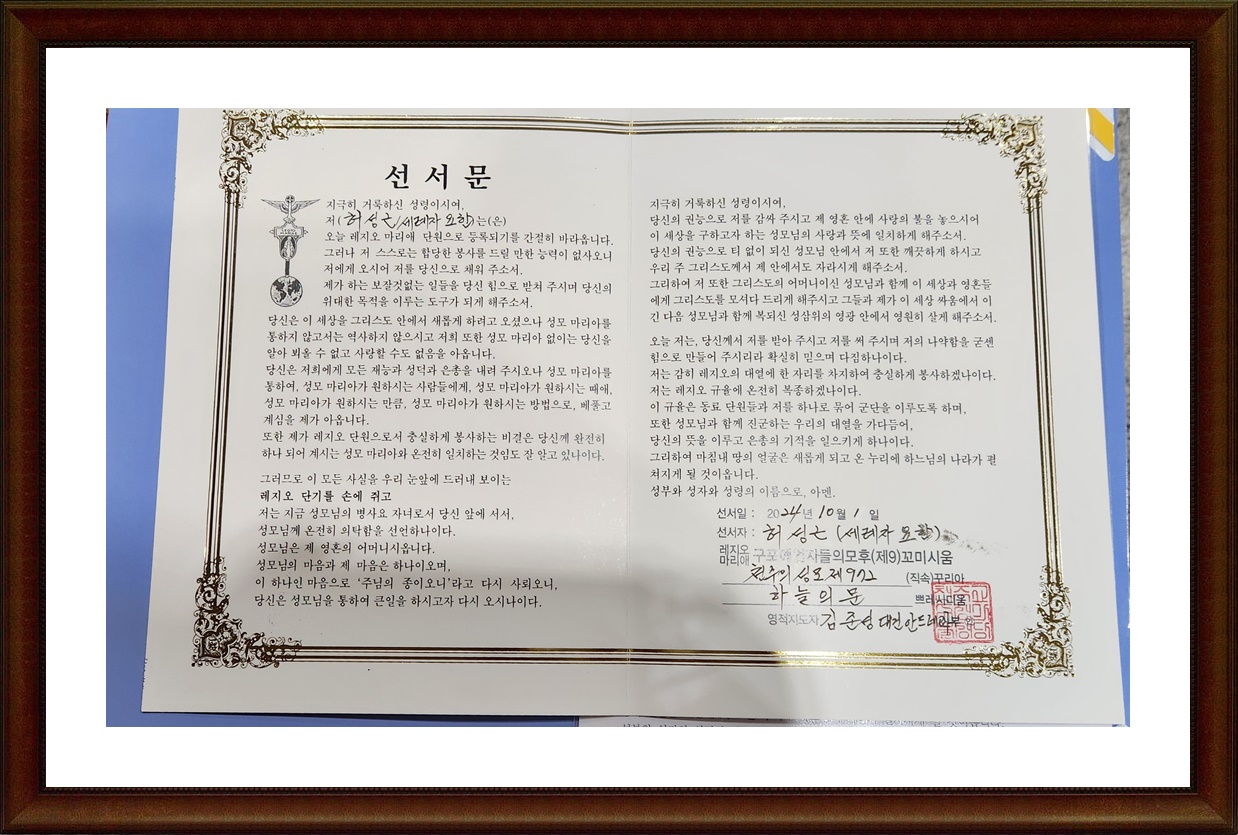 선서문
지극히 거룩하신 성령이시여,
저(허성근(세례자 요한)는(은)
오늘 레지오 마리애 단원으로 등록되기를 간절히 바라옵니다.
그러나 저 스스로는 합당한 봉사를 드릴 만한 능력이 없사오니
저에게 오시어 저를 당신으로 채워 주소서.
제가 하는 보잘것없는 일들을 당신 힘으로 받쳐 주시며 당신의
위대한 목적을 이루는 도구가 되게 해주소서.
당신은 이 세상을 그리스도 안에서 새롭게 하려고 오셨으나 성모 마리아를
통하지 않고서는 역사하지 않으시고 저희 또한 성모 마리아 없이는 당신을
알아 뵈올 수 없고 사랑할 수도 없음을 아옵니다.
당신은 저희에게 모든 재능과 성덕과 은총을 내려 주시오나 성모 마리아를
통하여, 성모 마리아가 원하시는 사람들에게, 성모 마리아가 원하시는 때애,
성모 마리아가 원하시는 만큼, 성모 마리아가 원하시는 방법으로, 베풀고
계심을 제가 아옵니다.
또한 제가 레지오 단원으로서 충실하게 봉사하는 비결은 당신께 완전히
하나 되어 계시는 성모 마리아와 온전히 일치하는 것임도 잘 알고 있나이다.
그러므로 이 모든 사실을 우리 눈앞에 드러내 보이는
레지오 단기를 손에 쥐고
저는 지금 성모님의 병사요 자녀로서 당신 앞에 서서,
성모님께 온전히 의탁함을 선언하나이다.
성모님은 제 영혼의 어머니시옵니다.
성모님의 마음과 제 마음은 하나이오며,
이 하나인 마음으로 '주님의 종이오니'라고 다시 사뢰오니,
당신은 성모님을 통하여 큰일을 하시고자 다시 오시나이다.
지극히 거룩하신 성령이시여,
당신의 권능으로 저를 감싸 주시고 제 영혼 안에 사랑의 불을 놓으시어
이 세상을 구하고자 하는 성모님의 사랑과 뜻에 일치하게 해주소서.
당신의 권능으로 티 없이 되신 성모님 안에서 저 또한 깨끗하게 하시고
우리 주 그리스도께서 제 안에서도 자라시게 해주소서.
그리하여 저 또한 그리스도의 어머니이신 성모님과 함께 이 세상과 영혼들
에게 그리스도를 모셔다 드리게 해주시고 그들과 제가 이 세상 싸움에서 이
긴 다음 성모님과 함께 복되신 성삼위의 영광 안에서 영원히 살게 해주소서.
오늘 저는, 당신께서 저를 받아 주시고 저를 써 주시며 저의 나약함을 굳센
힘으로 만들어 주시리라 확실히 믿으며 다짐하나이다.
저는 감히 레지오의 대열에 한 자리를 차지하여 충실하게 봉사하겠나이다.
저는 레지오 규율에 온전히 복종하겠나이다.
이 규율은 동료 단원들과 저를 하나로 묶어 군단을 이루도록 하며,
또한 성모님과 함께 진군하는 우리의 대열을 가다듬어,
당신의 뜻을 이루고 은총의 기적을 일으키게 하나이다.
그리하여 마침내 땅의 얼굴은 새롭게 되고 온 누리에 하느님의 나라가 펼
쳐지게 될 것이옵니다.
성부와 성자와 성령의 이름으로, 아멘.
선서일 : 2024년 10월 1일
선서자 : 허성근 (세례자 요한)
레지오 마리애 자들의모후(제9)꼬미시움
천주의 성모 제972 (직속)꾸리아
하늘의 문 쁘레시디움
영적지도자 김준성 대건안드레아